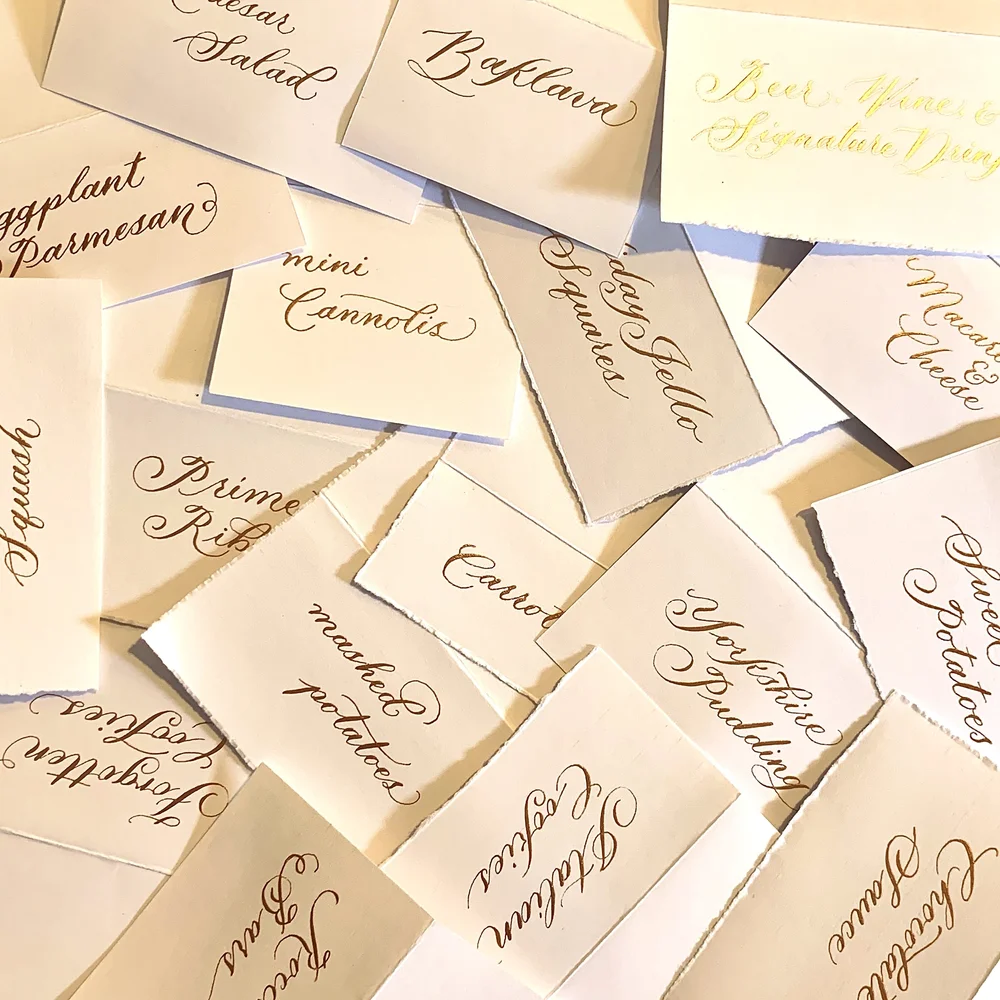 aesar
Salad
Baklava
Beer, Wine, &
Signature Drin
ggplant
Parmesan
mini
Cannolis
day Jello
Squares
Macar
&
Cheese
Squash
Prime
Rib
Carrot
mashed
potatoes
Yorkshire
Pudding
Sweet
Potatoes
Forgotten
Cookies
Italian
Cookies
Roc
Bars
Chocolate
Sauce